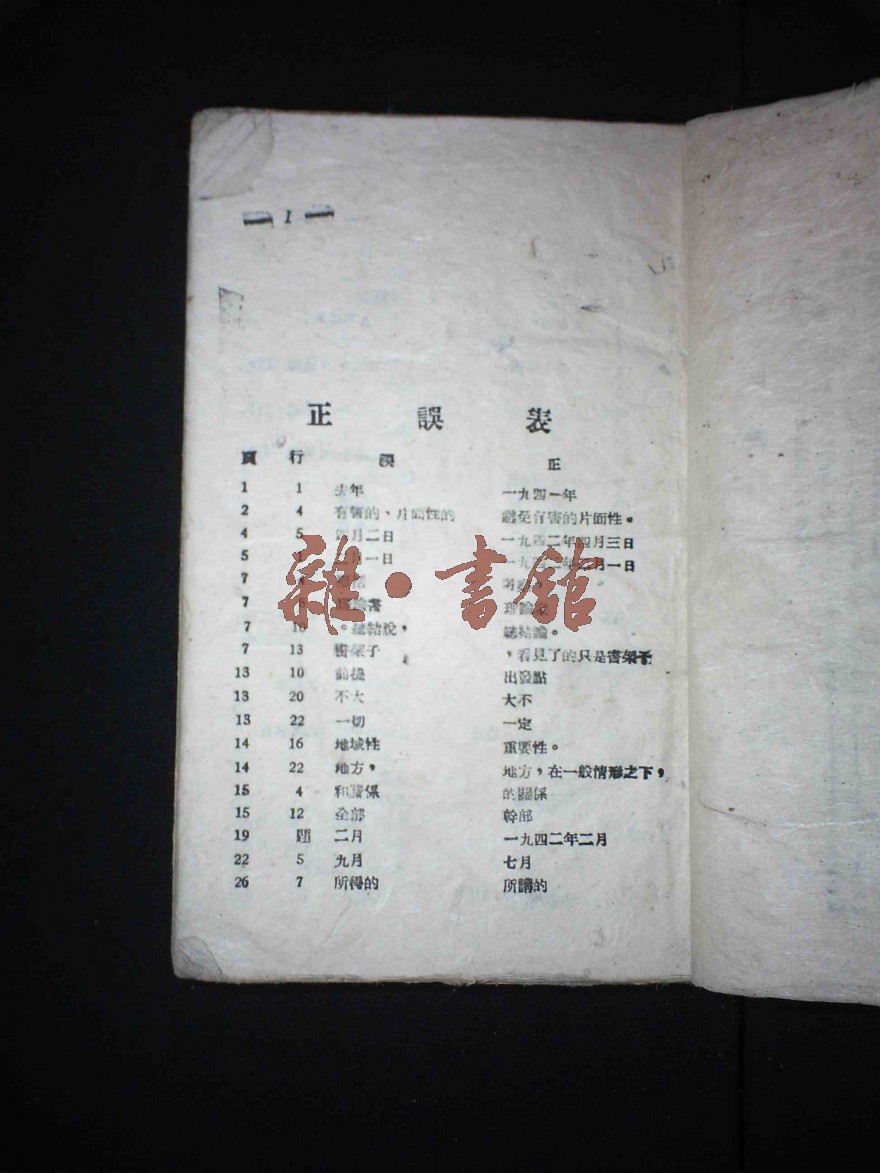 — 1 —
正 誤 表
頁 行 誤 正
1 1 去年 一九四一年
2 4 有害的、片面性的 避免有害的片面性。
4 5 四月二日 一九四二年四月三日
5 月一日 一九四二年 月一日
7
7 理論書 理論
7 10 。總結說, 總結論。
7 13 書架子 ,看見了的只是書架子
13 10 前提 出發點
13 20 不大 大不
13 22 一切 一定
14 16 地域性 重要性。
14 22 地方, 地方,在一般情形之下,
15 4 和關係 的關係
15 12 全部 幹部
19 題 二月 一九四二年二月
22 5 九月 七月
26 7 所得的 所講的
雜·書館